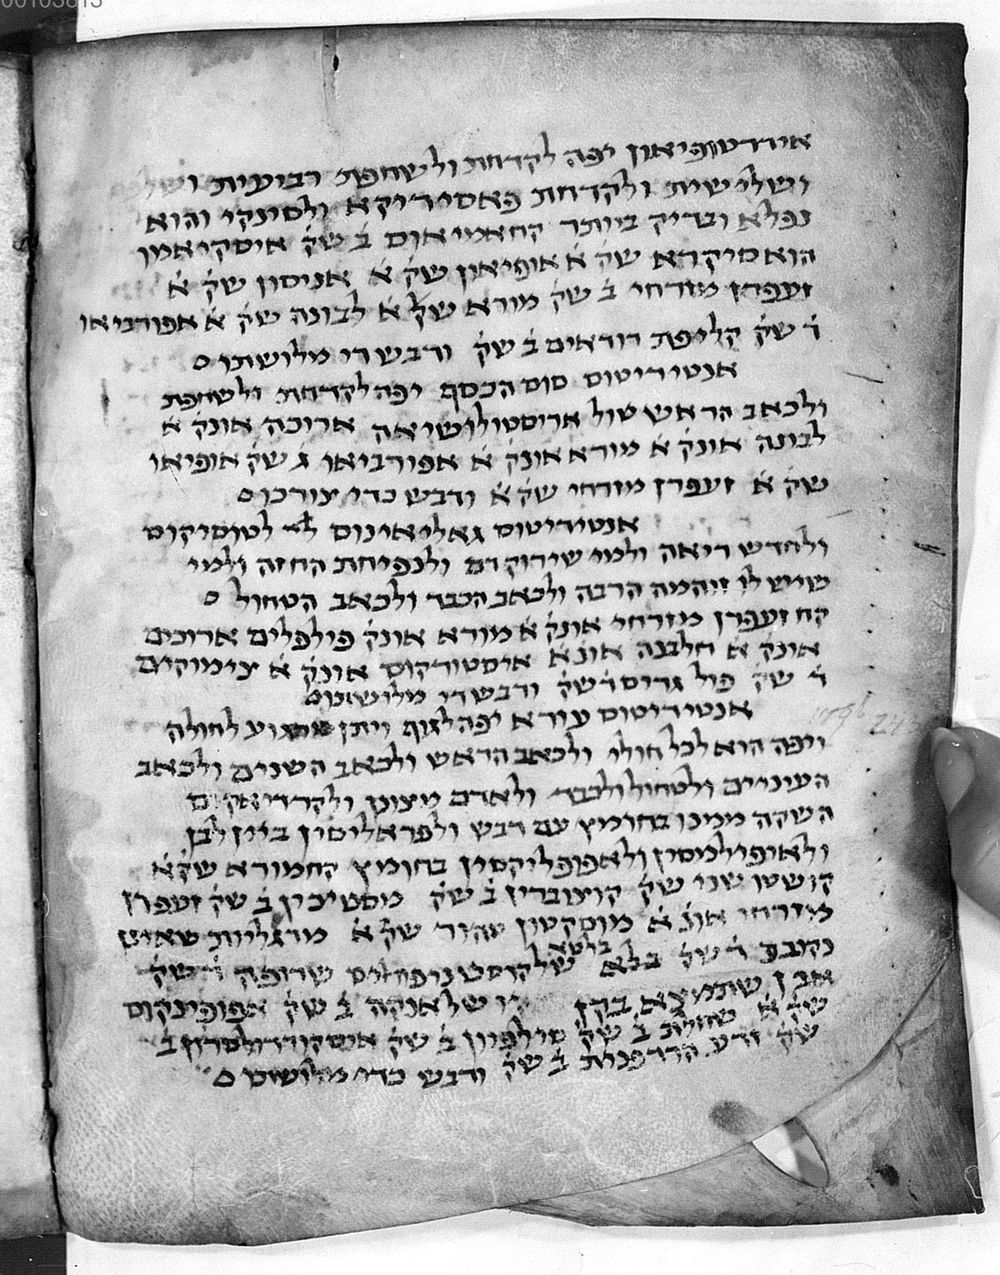 00103813
אידרטופיאון יפה לקדחת ולשחפת רביעית ושל
ושלישית ולקדחת פאסידיקא ולסינקי והוא
נפלא ובדיק ביותר קח אמיאוס ב֗ שק֗ איסקיאמון
הוא סיקרא שק֗ א֗ אופיאון שק֗ א֗ אניסון שק֗ א֗
זעפרן מזרחי ב֗ שק֗ מורא שק֗ א֗ לבונה שק֗ א֗ אפורביאו
ד֗ שק֗ קליפת דודאים ב֗ שק֗ ודבש די מלושתו
אנטידיטוס סוס הכסף יפה לקדחת ולשחפת
ולכאב הראש טול אריסטולושיאה ארוכה אונק֗ א֗
לבונה אונק֗ א֗ מורא אונק֗ א֗ אפורביאו ג֗ שק֗ אופיאו
שק֗ א֗ זעפרן מזרחי שק֗ א֗ ודבש כדי צורכו
אנטידיטוס גאליאינוס לטוסיקוס
ולחדש ריאה ולמי שירוק דם ולנפיחת החזה ולמי
שיש לו זיהמה הרבה ולכאב הכבד ולכאב הטחול
קח זעפרן מזרחי אונק֗ א֗ מורא אונק֗ פילפלים ארוכים
אונק֗ א֗ חלבנה אונ֗ א֗ איסטורקוס אונק֗ א֗ צימוקים
ד֗ שק֗ פול גריס ו֗ שק֗ ודבש די מלושתו
אנטידיטוס עירא יפה לגוף ויתן מרגוע לחולה
ויפה הוא לכל חולי ולכאב הראש ולכאב השנים ולכאב
העינים ולטחול ולכבד ולאדם מצונן ולקרדיאקוס
השקה ממנו בחומץ עם דבש ולפראליטין ביין לבן
ולאופילמסין ולאפופליקסין בחומץ קח מורא שק֗ א֗
קושטו שני שק֗ קוצובריז ב֗ שק֗ מסטיכין ב֗ שק֗ זעפרן
מזרחי אונ֗ א֗ מוסקטון טהור שק֗ א֗ מרגליות שאינן
נקובב ד֗ שק֗ בלא בלטא של קוסטו ניפוליס שרופה ד֗ שק֗
אבן שתמצא בקן של אנקה ב֗ שק֗ אפופינקוס
שק֗ א֗ ב֗ שק֗ סילפיון ב֗ שק֗ ב֗
שק֗ זרע הרדפנות ב֗ שק֗ ודבש כדי מלושתו